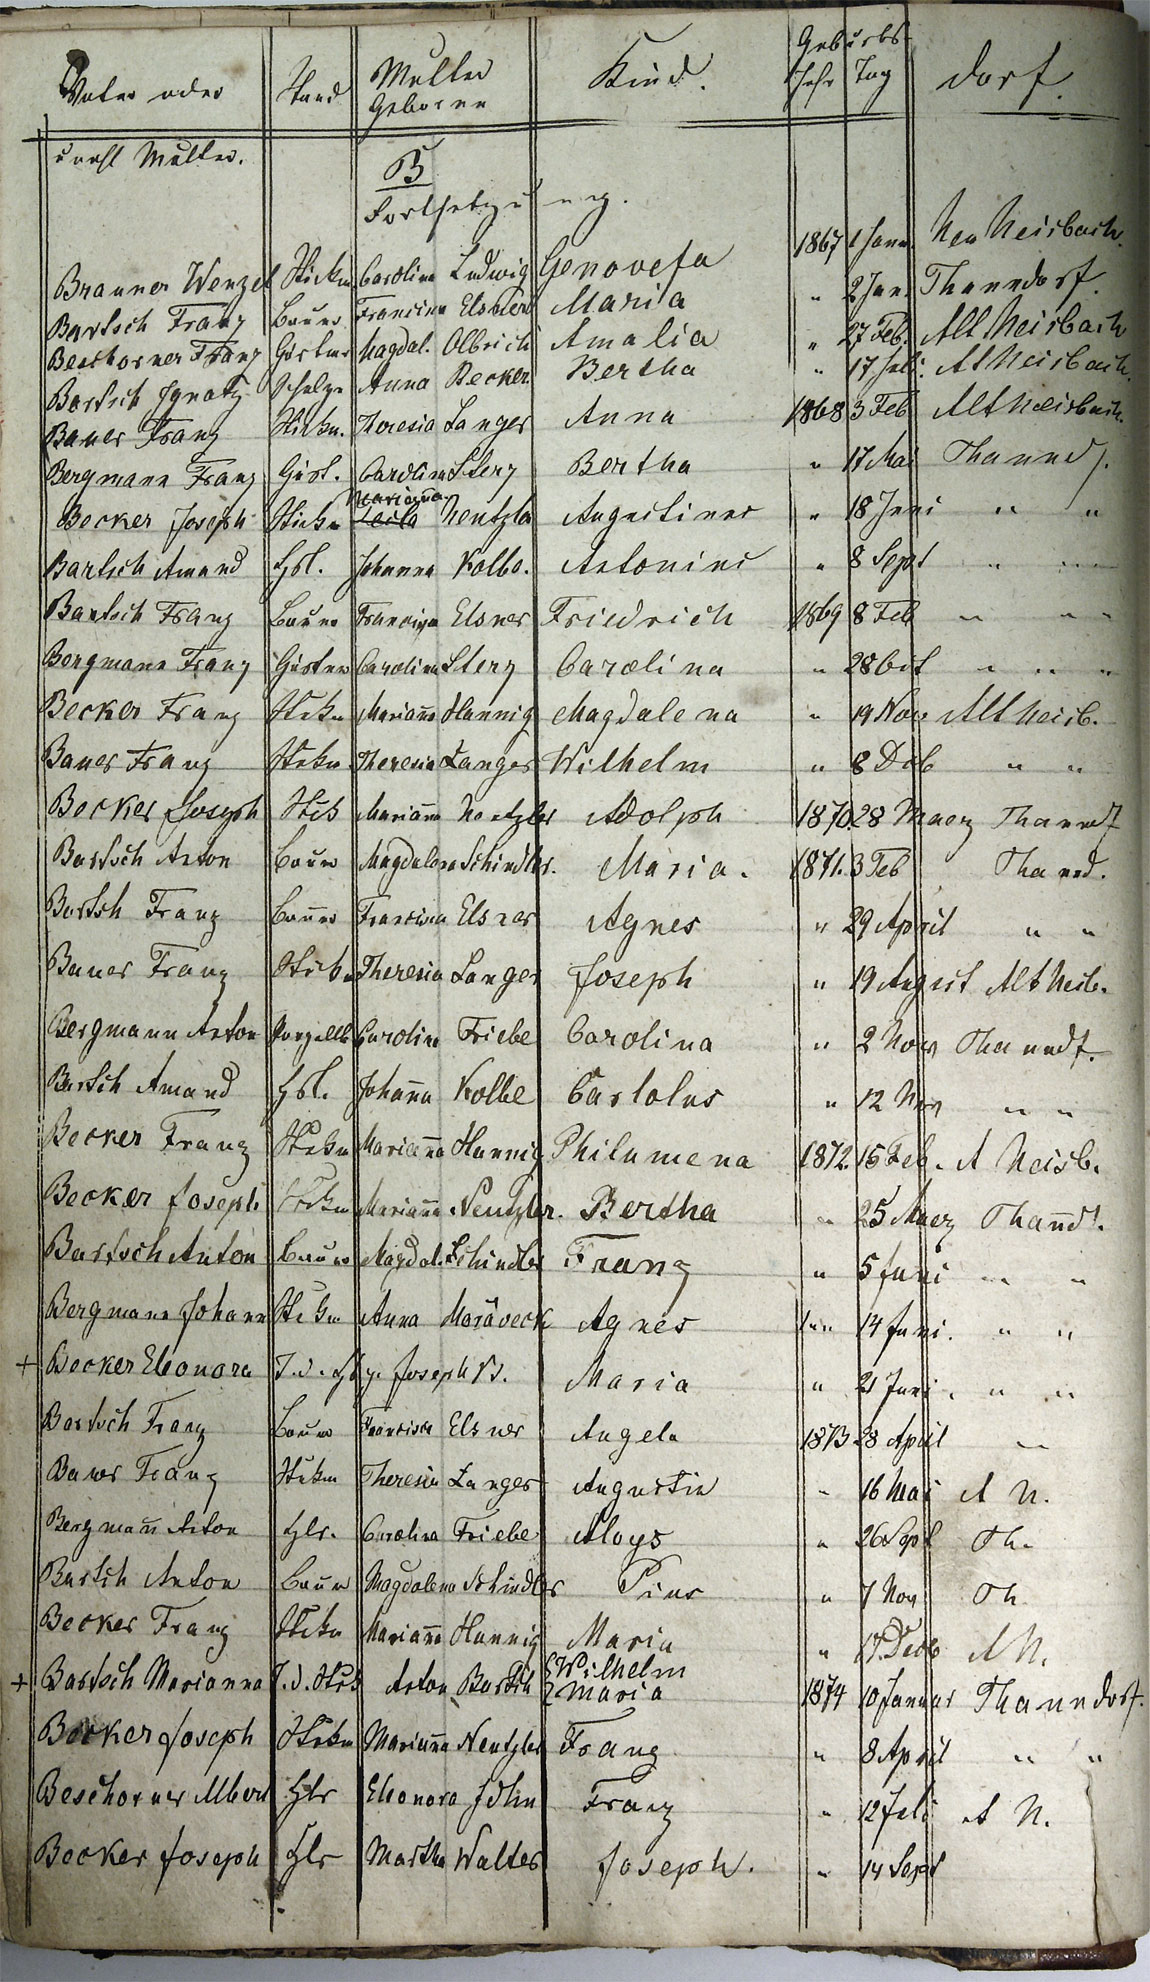 Vater oder Stand Mutter Geborne Kind. Geburts- Jahr Tag Dorf.
unehl Mutter.
B
Fortsetzung.
Brauner Wenzel Stickm Carolina Ludwig Genovefa 1867 1 Jann. Neu Neisbach.
Bartsch Franz Bauer Francisca Elsner Maria " 2 Jan. Thanndorf.
Beschorner Franz Gärtner Magdal. Olbrich Amalia " 27 Feb. Alt Neisbach
Bartsch Ignatz Scholze Anna Becker Bertha " 17 Juli. Alt Neisbach.
Bauer Franz Stickm. Theresia Langer Anna 1868 3 Feb Alt Neisbach.
Bergmann Franz Gärt. Carolina Sterz Bertha " 17 Mai Thannd.
Becker Joseph Stickm Marianna Nentzler Augustinus " 18 Juni " "
Bartsch Amand Hsl. Johanna Kolbe. Antonius " 8 Sept " "
Bartsch Franz Bauer Francisca Elsner Friedrich 1869 8 Feb " "
Bergmann Franz Gärtner Carolina Sterz Carolina " 28 Oct " " "
Becker Franz Stickm Mariana Hannig Magdalena " 19 Nov Alt Neisb.
Bauer Franz Stickm Theresia Langer Wilhelm " 8 Deb " "
Becker Joseph Stick Mariana Nentzler Adolph 1870. 28 Maerz Thanndf
Bartsch Anton Bauer Magdalena Schindler. Maria. 1871. 3 Feb Thannd.
Bartsh Franz Bauer Francisca Elsner Agnes " 29 April " "
Bauer Franz Stickm Theresia Langer Joseph " 19 August Alt Neisb.
Bergmann Anton Parzellb Carolina Friebe Carolina " 2 Nov Thanndf.
Bartsch Amand Hsl. Johana Kolbe Carlolus " 12 Nov " "
Becker Franz Stickm Mariana Hannig Philumena 1872. 15 Feb. A Neisb.
Becker Joseph Stickm Mariana Nentzler. Bertha " 25 Maerz Thandf.
Bartsch Anton Bauer Magdal. Schindler Franz " 5 Juni " "
Bergmann Johann Stickm Anna Moraveck Agnes " 14 Juni. " "
+ Becker Eleonora T. d. Hslr. Joseph B. Maria " 21 Juni. " "
Bartsch Franz Bauer Francisca Elsner Angela 1873 28 April "
Bauer Franz Stickm Theresia Langer Augustin " 16 Mai A N.
Bergman Anton Hslr. Carolina Friebe Aloys " 26 Sept Th.
Bartsch Anton Bauer Magdalena Schindler Pius " 7 Nov Th
Becker Franz Stickm Mariana Hannig Maria " 17. Deeb A N.
+ Bartsch Marianna T. d. Stick Anton Bartsch { Wilhelm
Maria 1874 10 Januar Thanndorf.
Becker Joseph Stickm Mariana Nentzler Franz " 8 April " "
Beschorner Albert Hslr Eleonora John Franz " 12 Juli A N.
Becker Joseph Hslr Martha Walter Joseph. " 14 Sept